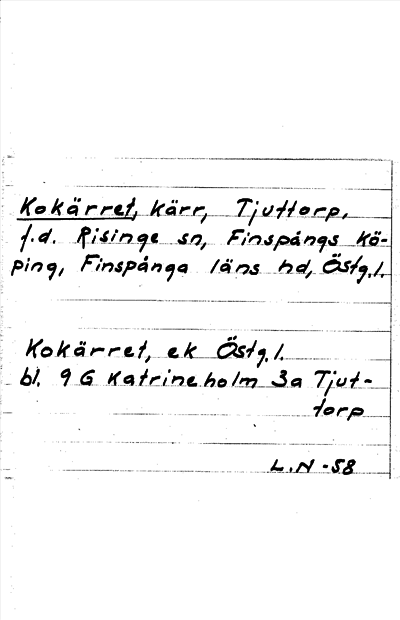 Kokärret, kärr, Tjuttorp,
f.d. Risinge sn, Finspångs kö-
ping, Finspånga läns hd, Östg.l.
Kokärret, ek Östg.l.
bl. 9 G Katrineholm 3a Tjut-
torp
L.N -58